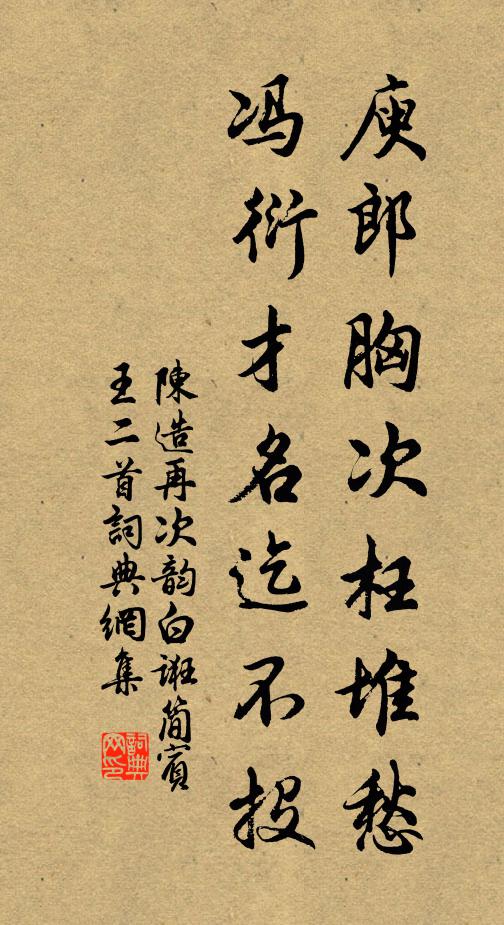 庾郎胸次枉堆愁
冯衍才名迄不投
陳造再次韵白诳簡賓
王二首詞典網集
詞典網印